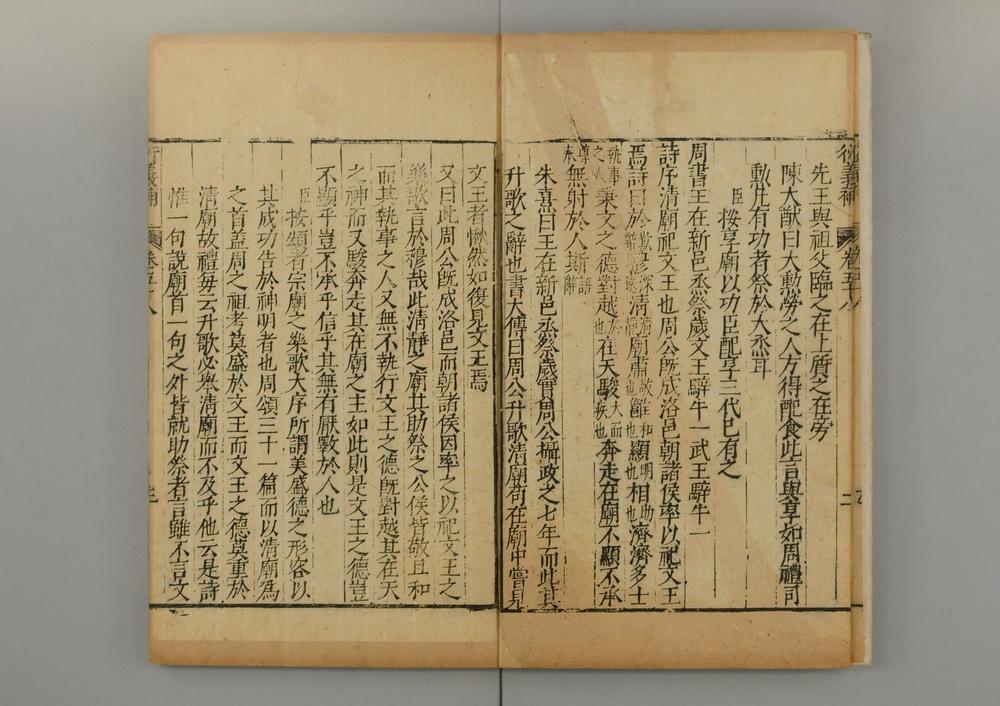 衍義補
卷五十八
二
先王與祖父臨之在上質之在旁
陳大猷曰大勲勞之人方得配食此言與享如周禮司
勲凡有功者祭於大烝耳
臣按享廟以功臣配享三代已有之
周書王在新邑烝祭歲文王騂牛一武王騂牛一
詩序清廟祀文王也周公既成洛邑朝諸侯率以祀文王
焉詩曰於歎辭穆深遠清清靜廟肅敬也雝和也顯明也相助也濟濟多士
執事之人秉文之德對越於也在天駿大而疾也奔走在廟不顯不承
尊奉無射於人斯語辭
朱熹曰王在新邑烝祭歲實周公攝政之七年而此其
升歌之辭也書大傳曰周公升歌清廟苟在廟中嘗見
文王者愀然如復見文王焉
又曰此周公既成洛邑而朝諸侯因率之以祀文王之
樂歌言於穆哉此清靜之廟其助祭之公侯皆敬且和
而其執事之人又無不執行文王之德既對越其在天
之神而又駿奔走其在廟之主如此則是文王之德豈
不顯乎豈不承乎信乎其無有厭斁於人也
臣按頌者宗廟之樂歌大序所謂美盛德之形容以
其成功告於神明者也周頌三十一篇而以清廟為
之首蓋周之祖考莫盛於文王而文王之德莫重於
清廟故禮每云升歌必舉清廟而不及乎他云是詩
惟一句說廟首一句之外皆就助祭者言雖不言文
衍義補
卷五十八
三